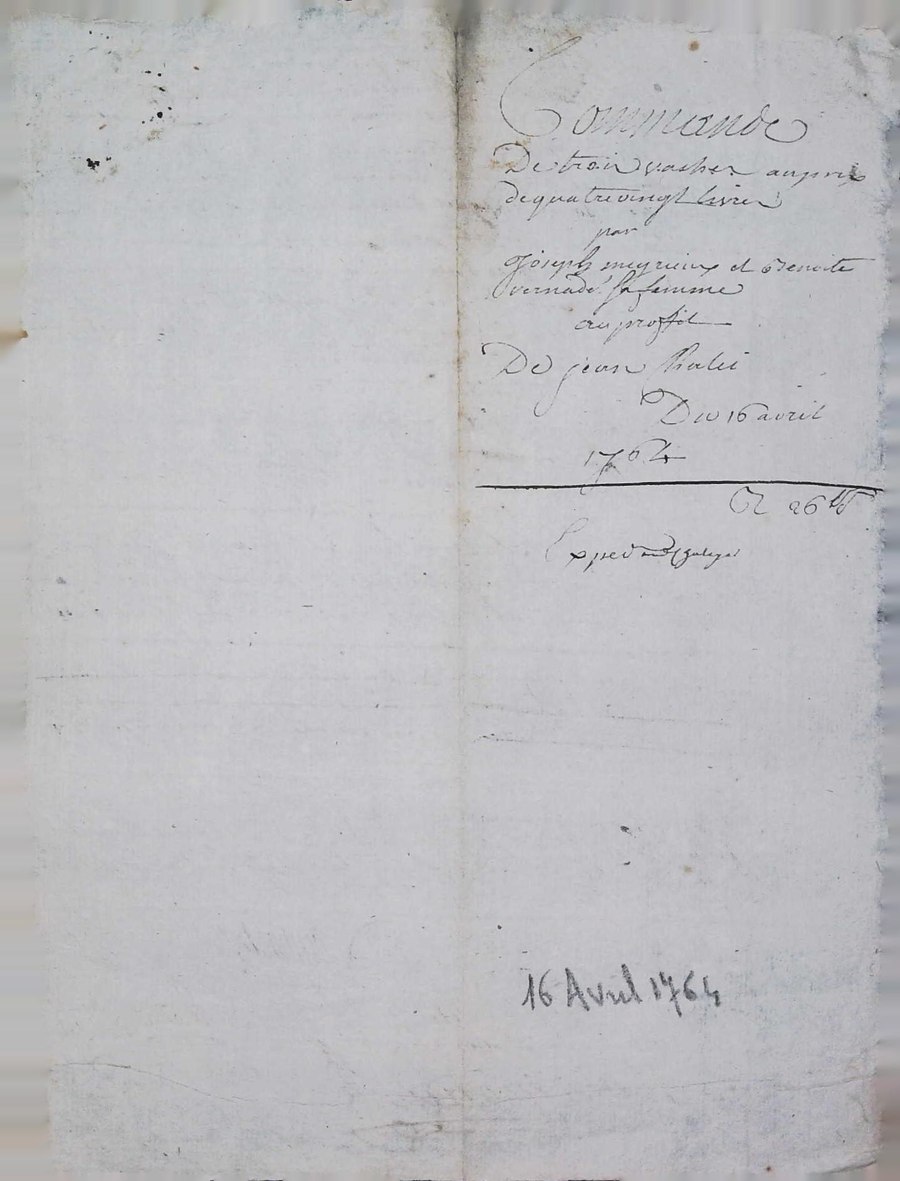 Commande
De trois vaches au prix
de quatre vingt livres
par
joseph meyrieux et Benoite
vernadé sa femme
au proffit
De jean
Du 16 avril
1764
Exped
16 Avril 1764